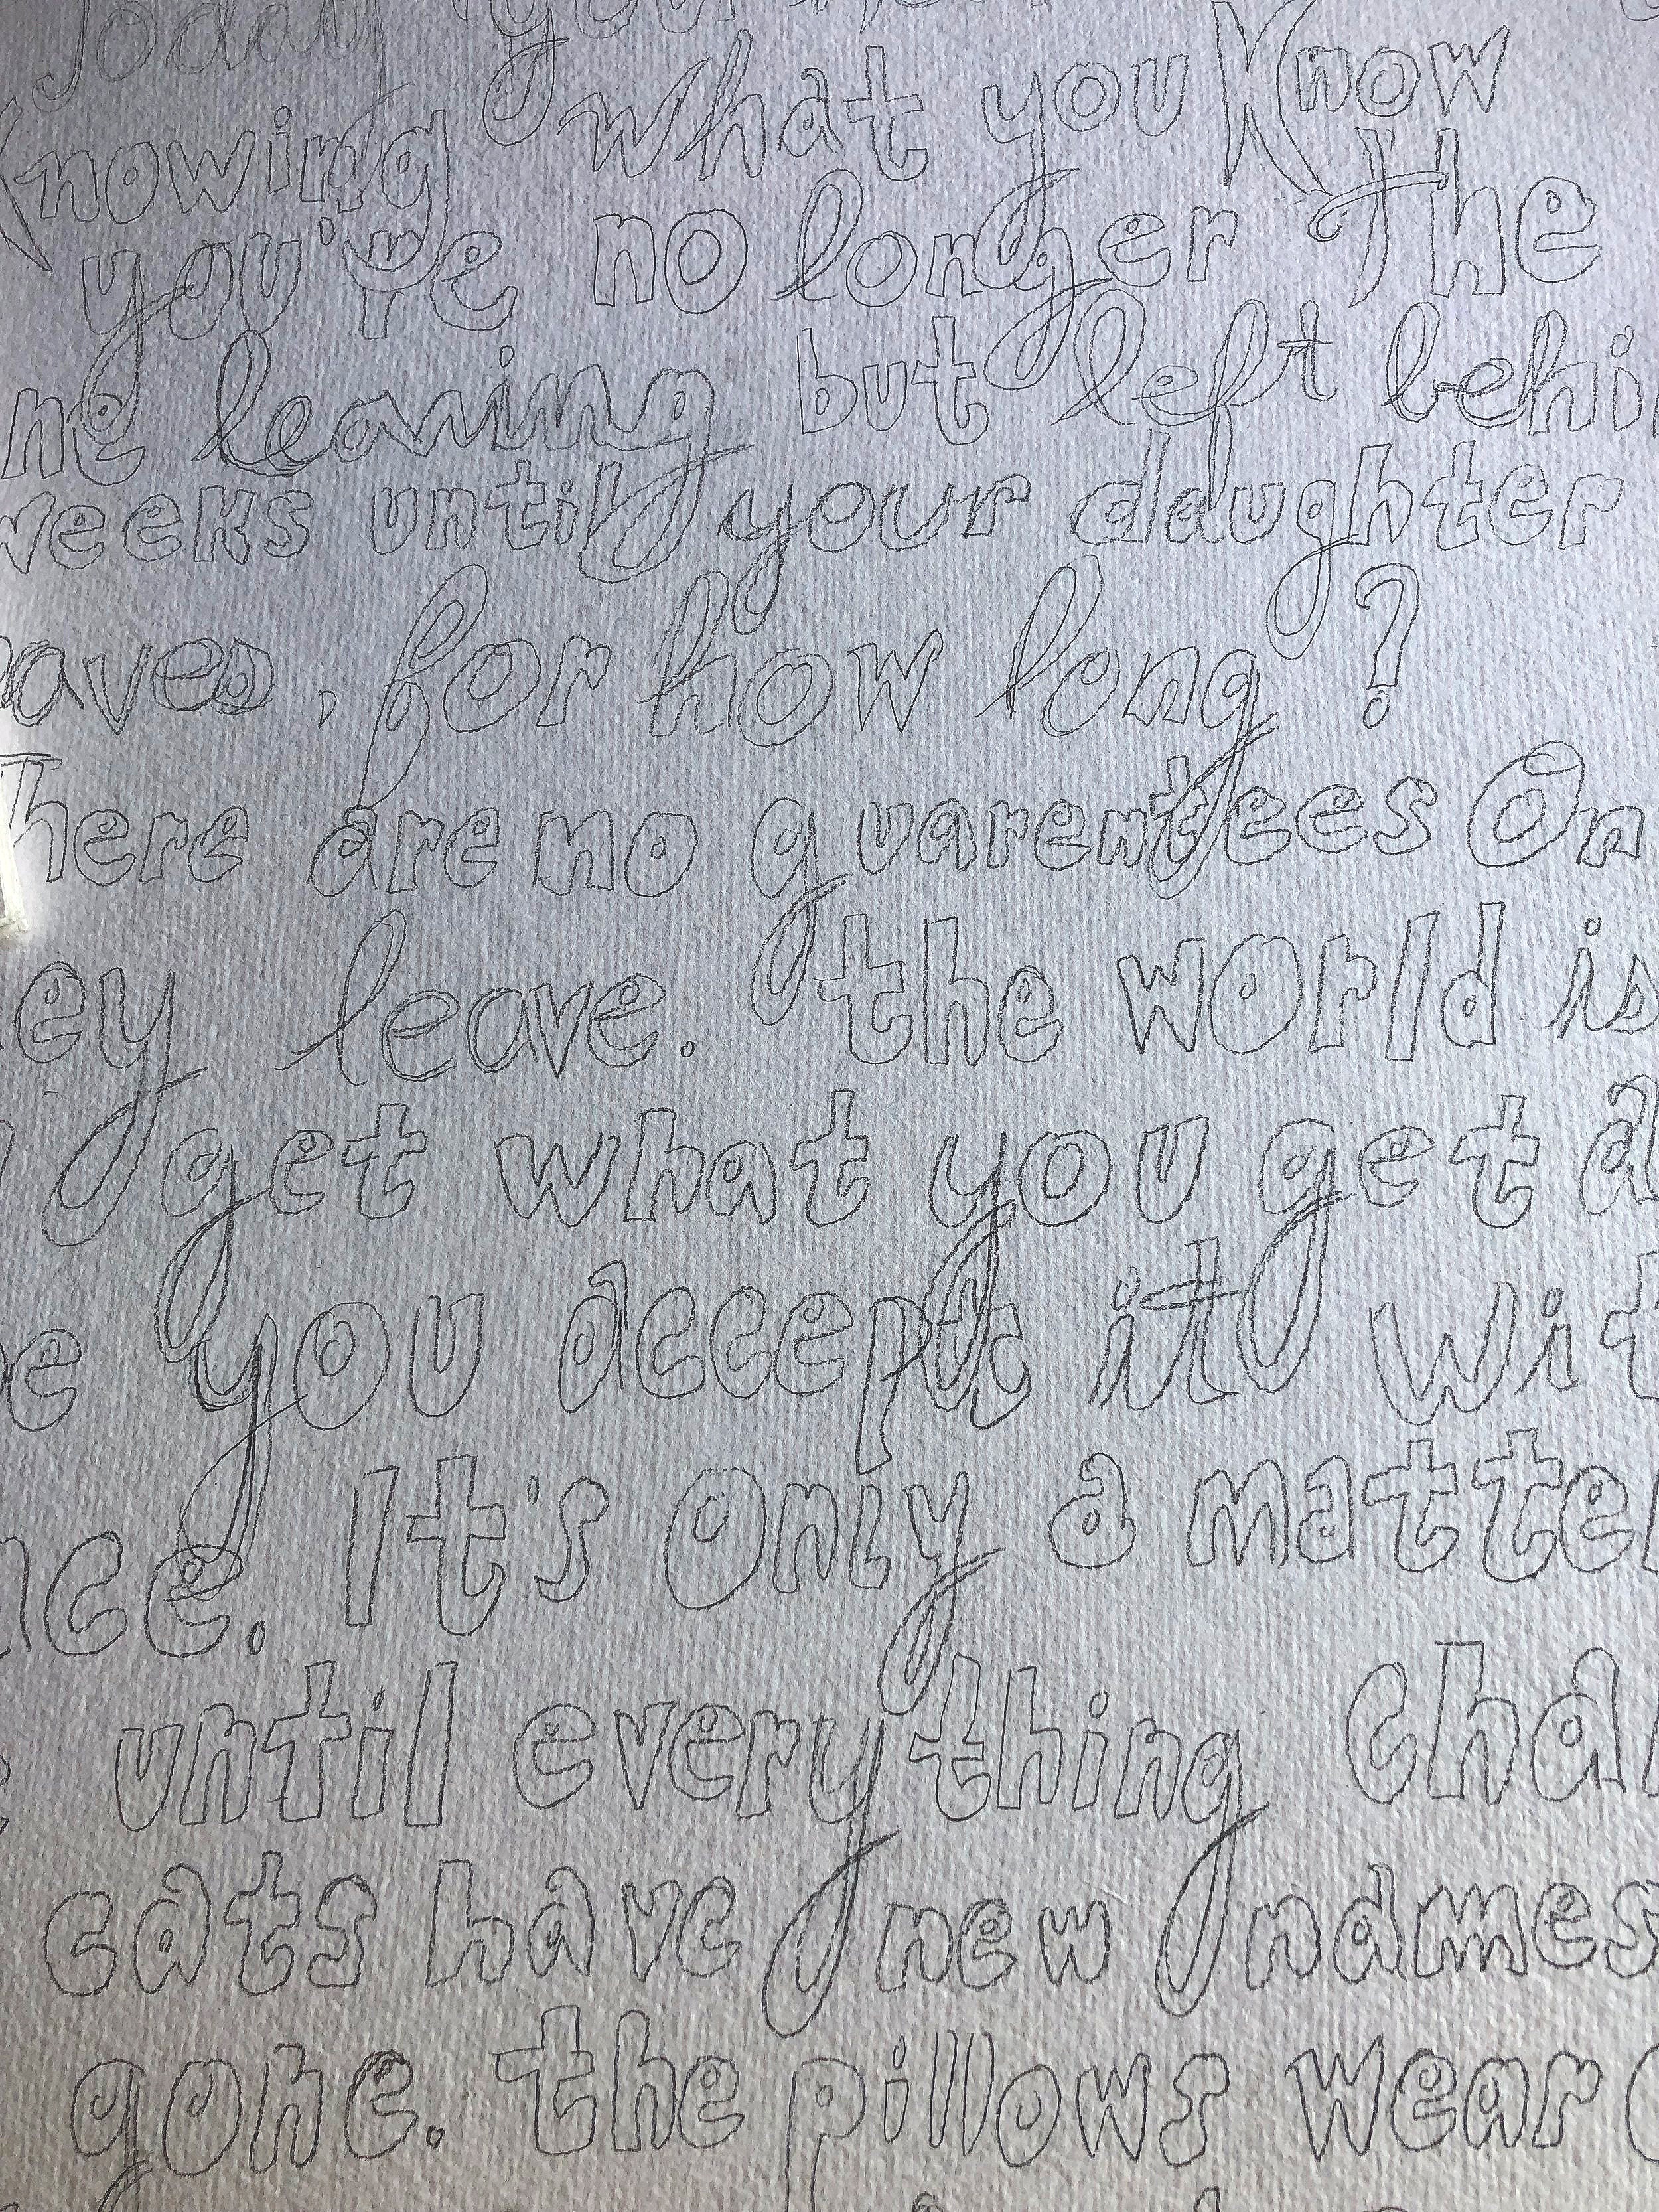 Today you
Knowing what you Know
you're no longer The
ne leaving but left behi
weeks until your daughter
eaves, for how long?
There are no guarentees On
ey leave. the world is
get what you get a
e you accept it wit
ace. It's Only a matter
until everything cha
cats have new names
gone. the pillows wear